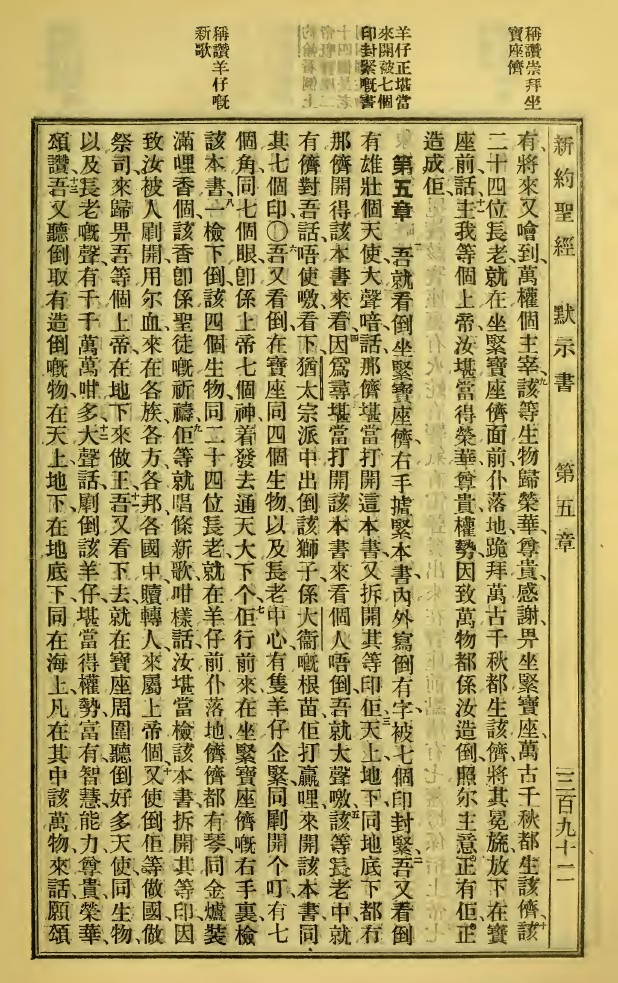 稱讚崇拜坐
寶座儕
羊仔正堪當
來開被七個
印封緊嘅書
稱讚羊仔嘅
新歌
新約聖經 默示書 第五章 三百九十二
有、將來又噲到、萬權個主宰、九該等生物歸榮華、尊貴、感謝、畀坐緊寶座、萬古千秋都生該儕、十該
二十四位長老、就在坐緊寶座儕面前仆落地、跪拜萬古千秋都生該儕、將其冕旒放下在寶
座前話、十一主、我等個上帝、汝堪當得榮華尊貴權勢、因致萬物都係汝造倒、照尔主意、正有佢、正
造成佢、
第五章 一吾就看倒坐緊寶座儕、右手㨿緊本書、內外寫倒有字、被七個印封緊、二吾又看倒
有雄壯個天使、大聲喑話、那儕堪當打開這本書、又拆開其等印佢、三天上地下同地底下、都冇
那儕開得該本書來看、四因爲尋堪當打開該本書來看個人唔倒、吾就大聲噭、五該等長老中、就
有儕對吾話、唔使噭、看下猶太宗派中出倒該獅子、係大衞嘅根苗、佢打贏哩、來開該本書、同
其七個印〇六吾又看倒在寶座同四個生物、以及長老中心、有隻羊仔企緊、同劏開个叮、有七
個角、同七個眼、卽係上帝七個神、着發去通天大下个、七佢行前來、在坐緊寶座儕嘅右手裏、檢
該本書、八一檢下倒、該四個生物、同二十四位長老、就在羊仔前仆落地、儕儕都有琴、同金爐、裝
滿哩香個、該香卽係聖徒嘅祈禱、九佢等就唱條新歌、咁樣話、汝堪當檢該本書、拆開其等印、因
致汝被人劏開、用尔血、來在各族各方各邦各國中、贖轉人來屬上帝個、十又使倒佢等做國、做
祭司、來歸畀吾等個上帝、在地下來做王、十一吾又看下去、就在寶座周圍、聽倒好多天使、同生物、
以及長老嘅聲、有千千萬萬咁多、十二大聲話、劏倒該羊仔、堪當得權勢、富有、智慧、能力、尊貴、榮華、
頌讚、十三吾又聽倒取有造倒嘅物、在天上、地下、在地底下、同在海上、凡在其中該萬物、來話、願頌